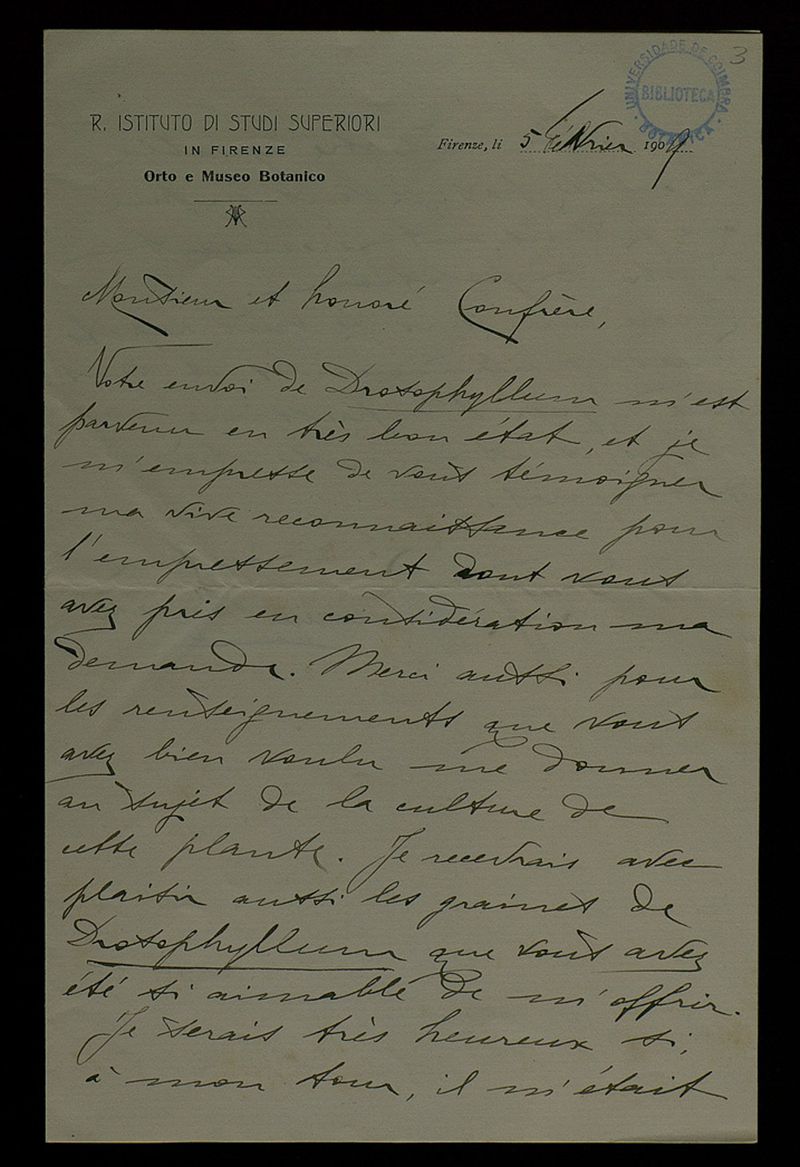 3
UNIVERSIDADE DE COIMBRA
BIBLIOTECA
BOTANICA
R. ISTITUTO DI STUDI SUPERIORI
IN FIRENZE
Orto e Museo Botanico
Firenze, li 5 février 1909
Monsieur et honoré Confrère,
Votre envoi de Drosophyllum m'est
parvenu en très bon état, et je
m'empresse de vous témoigner
ma vive reconnaissance pour
l'empressement dont vous
avez pris en considération ma
demande. Merci aussi pour
les renseignements que vous
avez bien voulu me donner
au sujet de la culture de
cette plante. Je recevrais avec
plaisir aussi les graines de
Drosophyllum que vous avez
été si aimable de m'offrir.
Je serais très heureux si,
à mon tour, il m'était